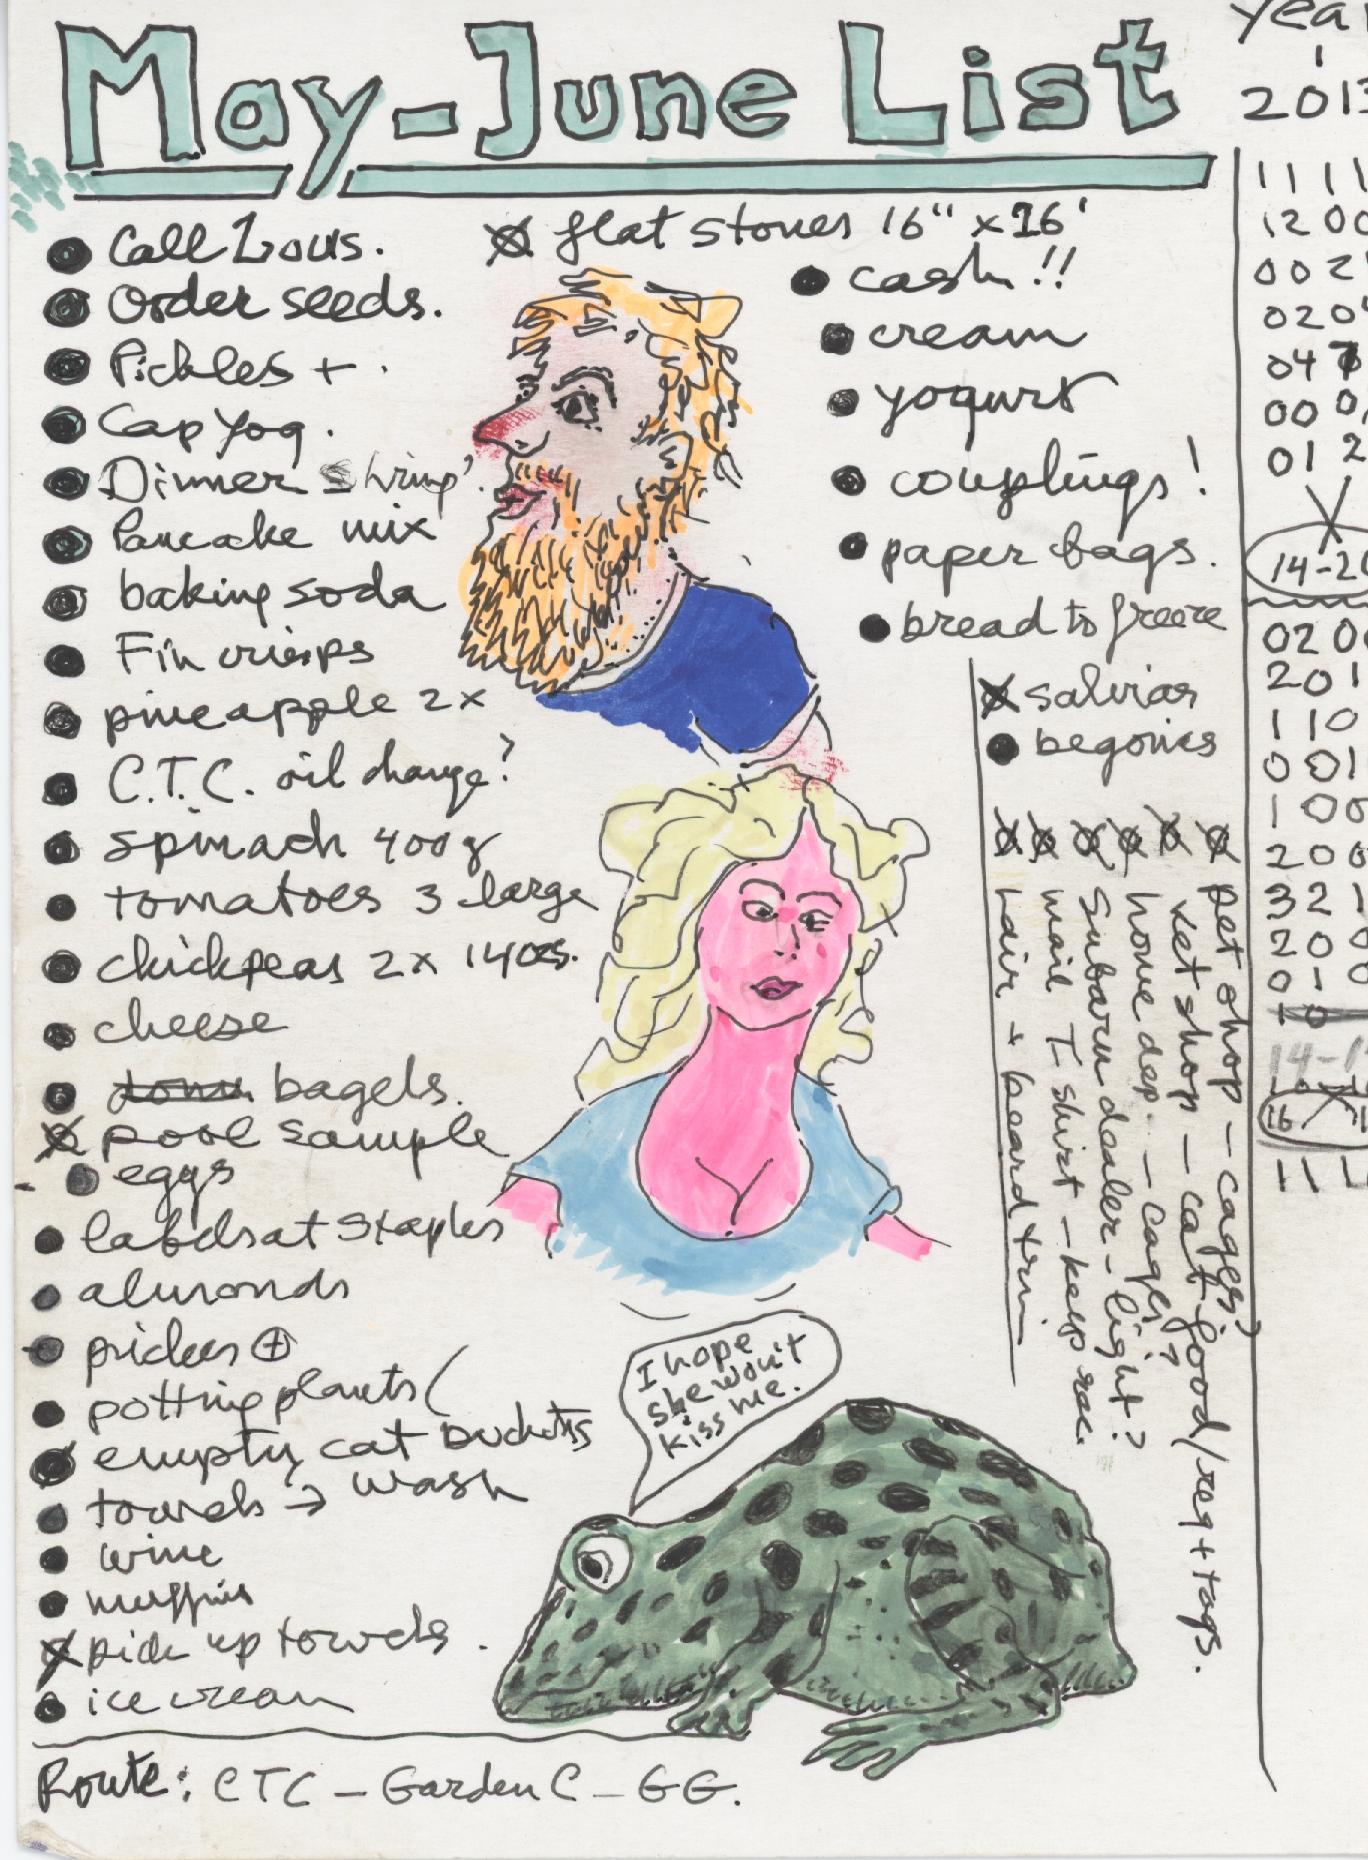 May-June List
Call Lous.
Order seeds.
Pickles +.
Cap Yog.
Dinner
Pancake mix
baking soda
Fin crisps
pineapple 2x
C.T.C. oil change?
spinach 400g
tomatoes 3 large
chickpeas 2x 14ozs.
cheese
bagels.
pool sample
eggs
labels at Staples
almonds
potting plants (
empty cat buckets
towels → wash
wine
muffins
pick up towels.
ice cream
Route: CTC - Garden C - GG.
flat stones 16" x 16'
cash!!
cream
yogurt
couplings!
paper bags.
bread to freeze
salvias
begonias
pet shop - cages,
vet shop - cat food/reg + tags.
home dep. - cages?
Subaru dealer - light?
mail T-shirt - keep rec.
hair + beard trim
I hope
she won't
kiss me.
1111
1200
002
020
04
00 0
01 2
020
201
110
001
-100
200
321
200
0-
+0
11